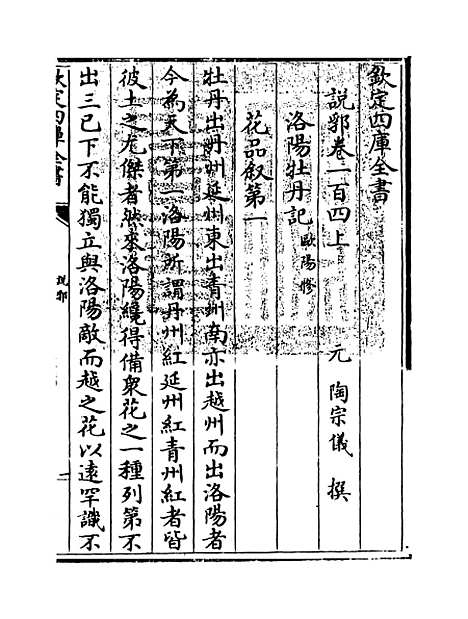 欽定四庫全書
說郛卷一百四上
元 陶宗儀 撰
洛陽牡丹記 歐陽修
花品叙第一
牡丹出丹州延州東出青州南亦出越州而出洛陽者
今為天下第一洛陽所謂丹州紅延州紅青州紅者皆
彼土之尤傑者然來洛陽纔得備衆花之一種列第不
出三已下不能獨立與洛陽敵而越之花以逺罕識不
欽定四庫全書
説郛